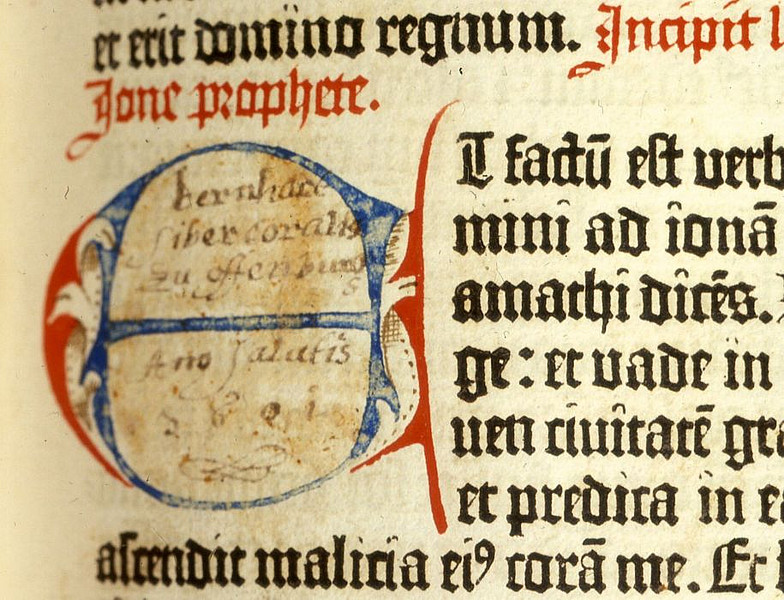 et erit domino regnum. Incipit l
Jone prophete.
E
T factū est verb
mini ad ionā
amathi dicēs.
ge: et vade in
uen ciuitatē gra
et predica in e
ascendit malicia eiꝰ corā me. Et
bernhard
liber coralis
zu offenburg
Ano salutis